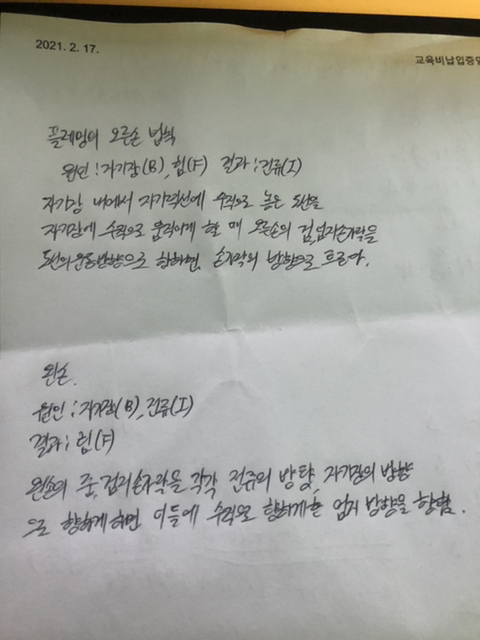 2021. 2. 17.
교육비납입증명
플레밍의 오른손 법칙
원인 : 자기장(B), 힘(F) 결과 : 전류(I)
자기장 내에서 자기력선에 수직으로 놓은 도선을
자기장에 수직으로 움직이게 할 때 오른손의 검,엄지손가락을
도선의 운동방향으로 향하면, 손가락의 방향으로 흐른다.
왼손.
원인 : 자기장(B), 전류(I)
결과 : 힘(F)
왼손의 중,검지손가락을 각각 전류의 방향, 자기장의 방향
으로 향하게하면 이들에 수직으로 향하게한 엄지 방향을 향함.